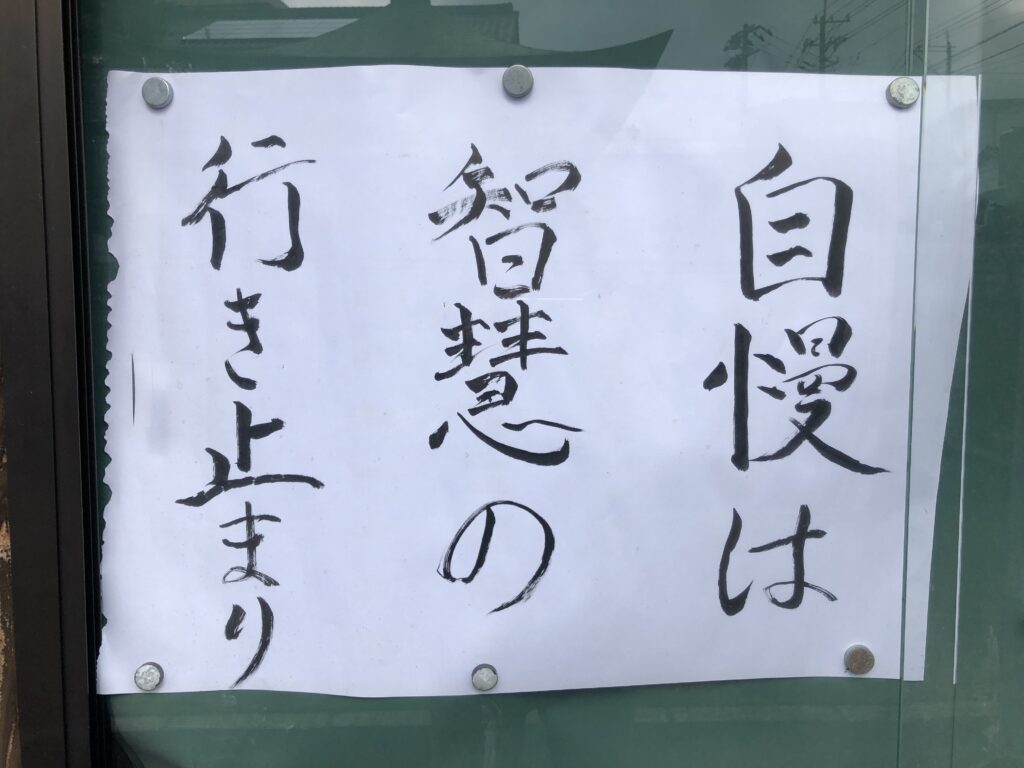 自慢は
智慧の
行き止まり